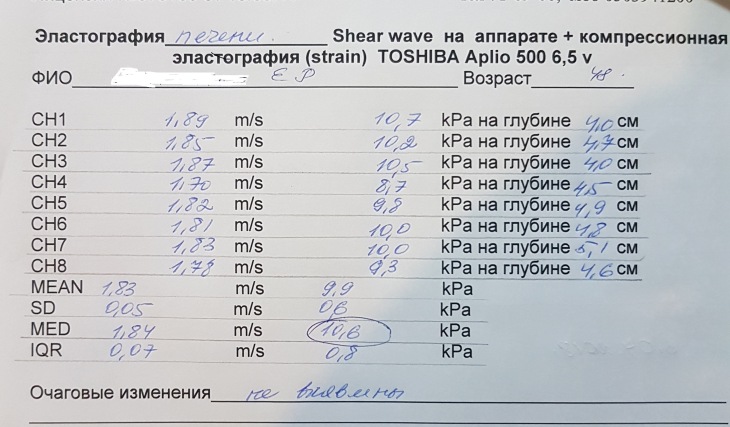 Эластография печени. Shear wave на аппарате + компрессионная
эластография (strain) TOSHIBA Aplio 500 6,5 v
ФИО Е Р Возраст 48.
CH1 1,89 m/s 10,7 kPa на глубине 4,0 см
CH2 1,85 m/s 10,2 kPa на глубине 4,7 см
CH3 1,87 m/s 10,5 kPa на глубине 4,0 см
CH4 1,70 m/s 8,7 kPa на глубине 4,5 см
CH5 1,82 m/s 9,8 kPa на глубине 4,9 см
CH6 1,81 m/s 10,0 kPa на глубине 4,8 см
CH7 1,83 m/s 10,0 kPa на глубине 5,1 см
CH8 1,78 m/s 9,3 kPa на глубине 4,6 см
MEAN 1,83 m/s 9,9 kPa
SD 0,05 m/s 0,6 kPa
MED 1,84 m/s 10,6 kPa
IQR 0,07 m/s 0,8 kPa
Очаговые изменения не выявлены